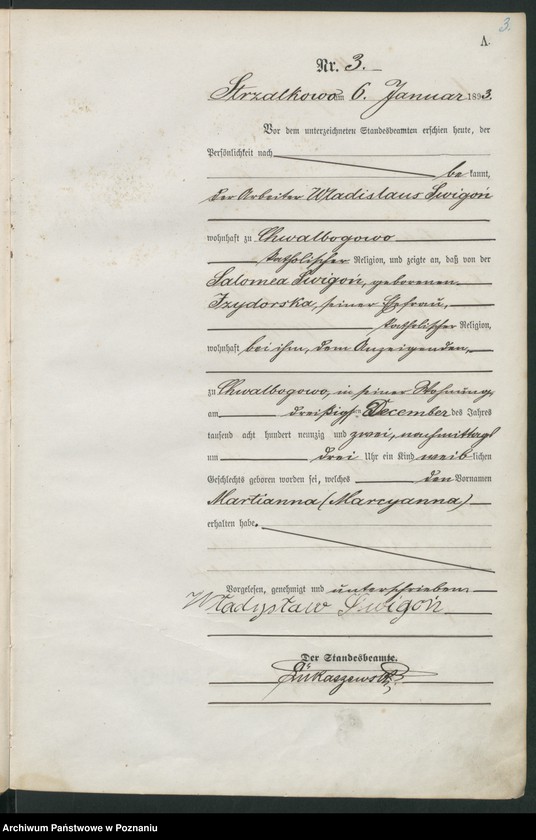 3.
A.
Nr. 3.
Strzalkowo am 6. Januar 1893.
Vor dem unterzeichneten Standesbeamten erschien heute, der
Persönlichkeit nach
be kannt,
der Arbeiter Wladislaus Swigoń
wohnhaft zu Chwalbogowo
katholischer Religion, und zeigte an, daß von der
Salomea Swigoń, geborenen
Izydorska, seiner Ehefrau,
katholischer Religion,
wohnhaft bei ihm, dem Anzeigenden,
zu Chwalbogowo, in seiner Wohnung,
am dreißigsten December des Jahres
tausend acht hundert neunzig und zwei, nachmittags
um drei Uhr ein Kind weib-lichen
Geschlechts geboren worden sei, welches den Vornamen
Martianna (Marcyanna)
erhalten habe.
Vorgelesen, genehmigt und unterschrieben
Władysław Swigoń
Der Standesbeamte.
Lukaszewski
Archiwum Państwowe w Poznaniu